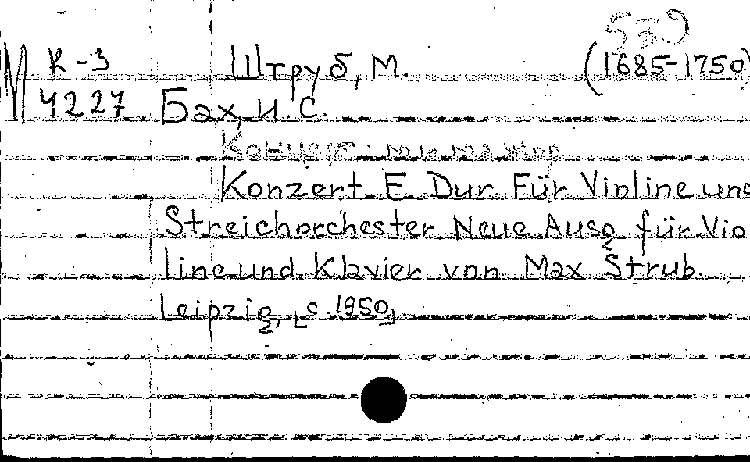 579
К-3 Штруб, М. (1685-1750)
4227 Бах, И. С.
Концерт ми мажор
Konzert E Dur Für Violine und
Streichorchester Neue Ausg für Vio
line und Klavier von Max Strub.
Leipzig, [c. 1950]